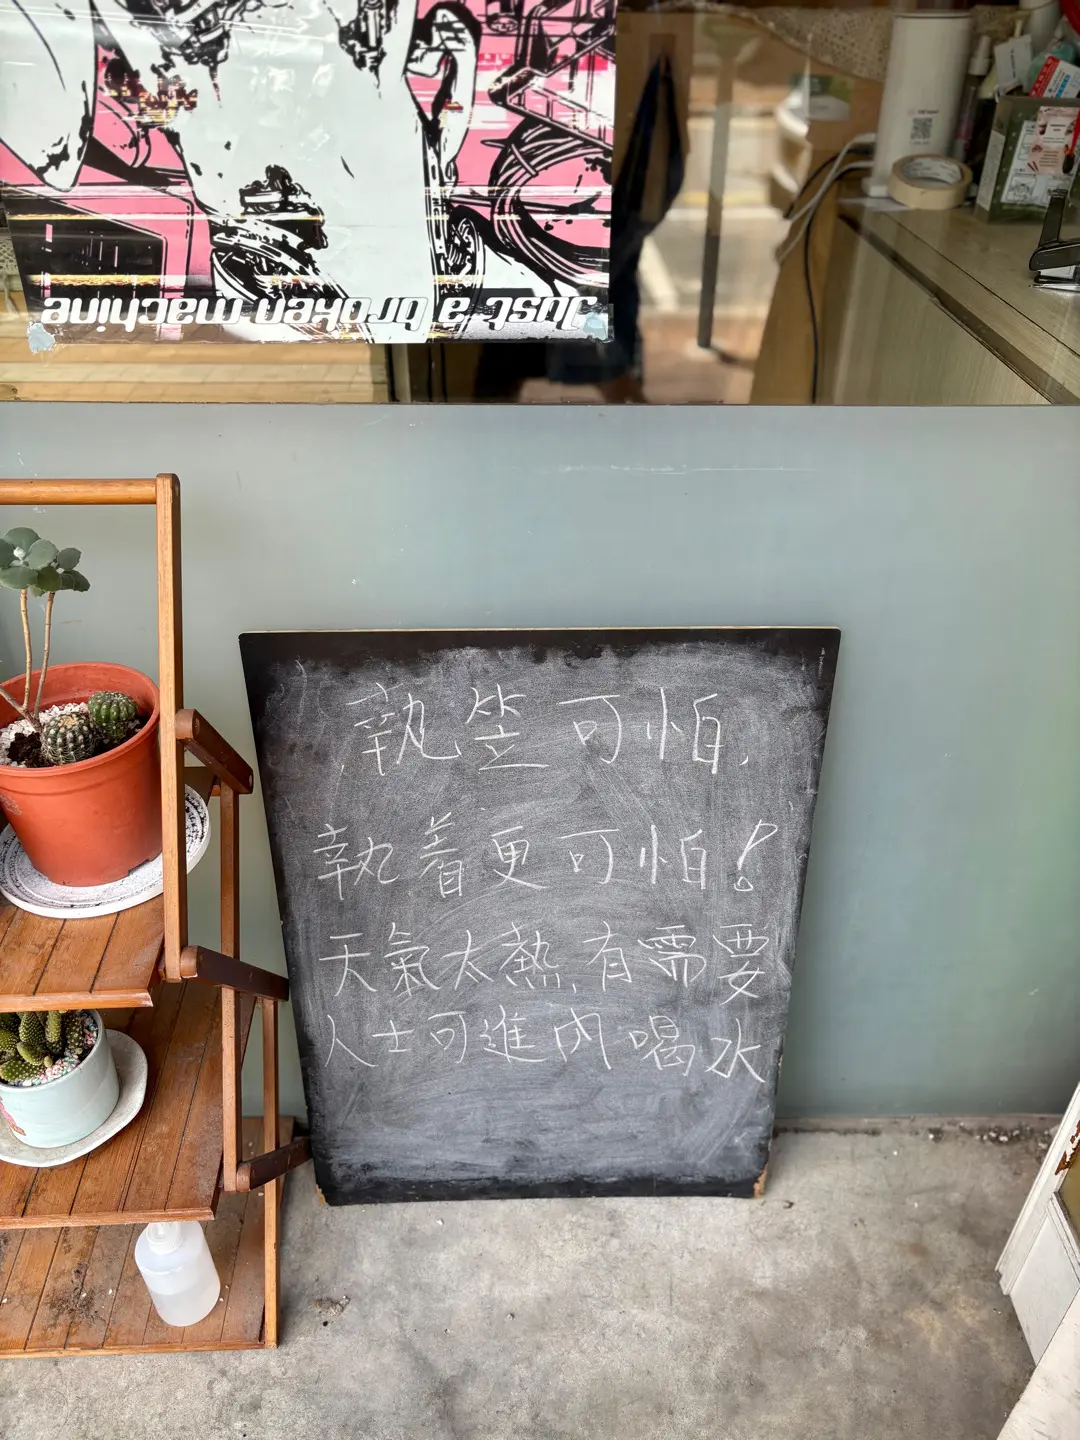 Just a broken machine
執笠可怕,
執着更可怕!
天氣太熱,有需要
人士可進內喝水